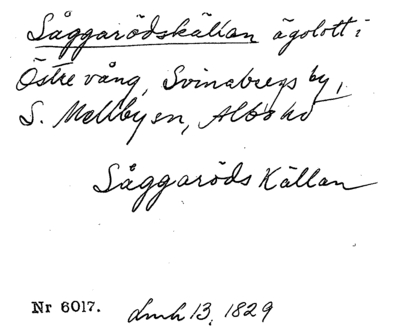 Såggarödskällan ägolott i
Östre vång, Svinabergs by,
S. Mellby sn, Albo hd
Såggaröds Källan
Nr 6017. dmh 13, 1829